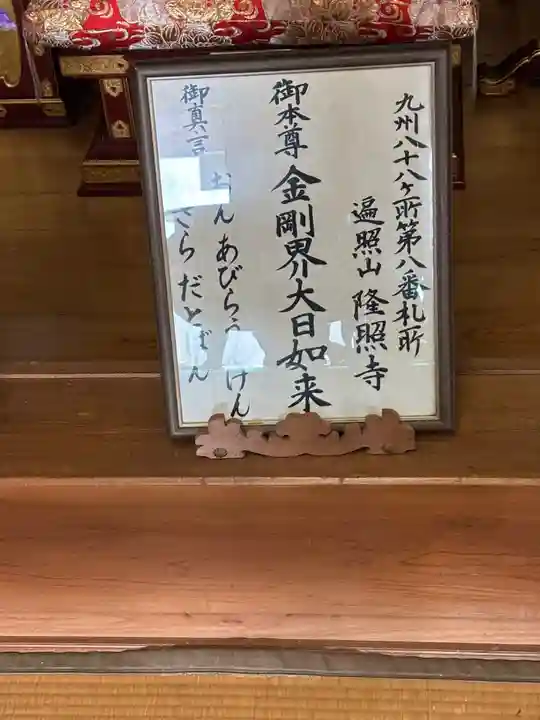 九州八十八ヶ所第八番札所
遍照山 隆照寺
御本尊 金剛界大日如来
御真言 おん あびらうんけん
ばざらだとばん